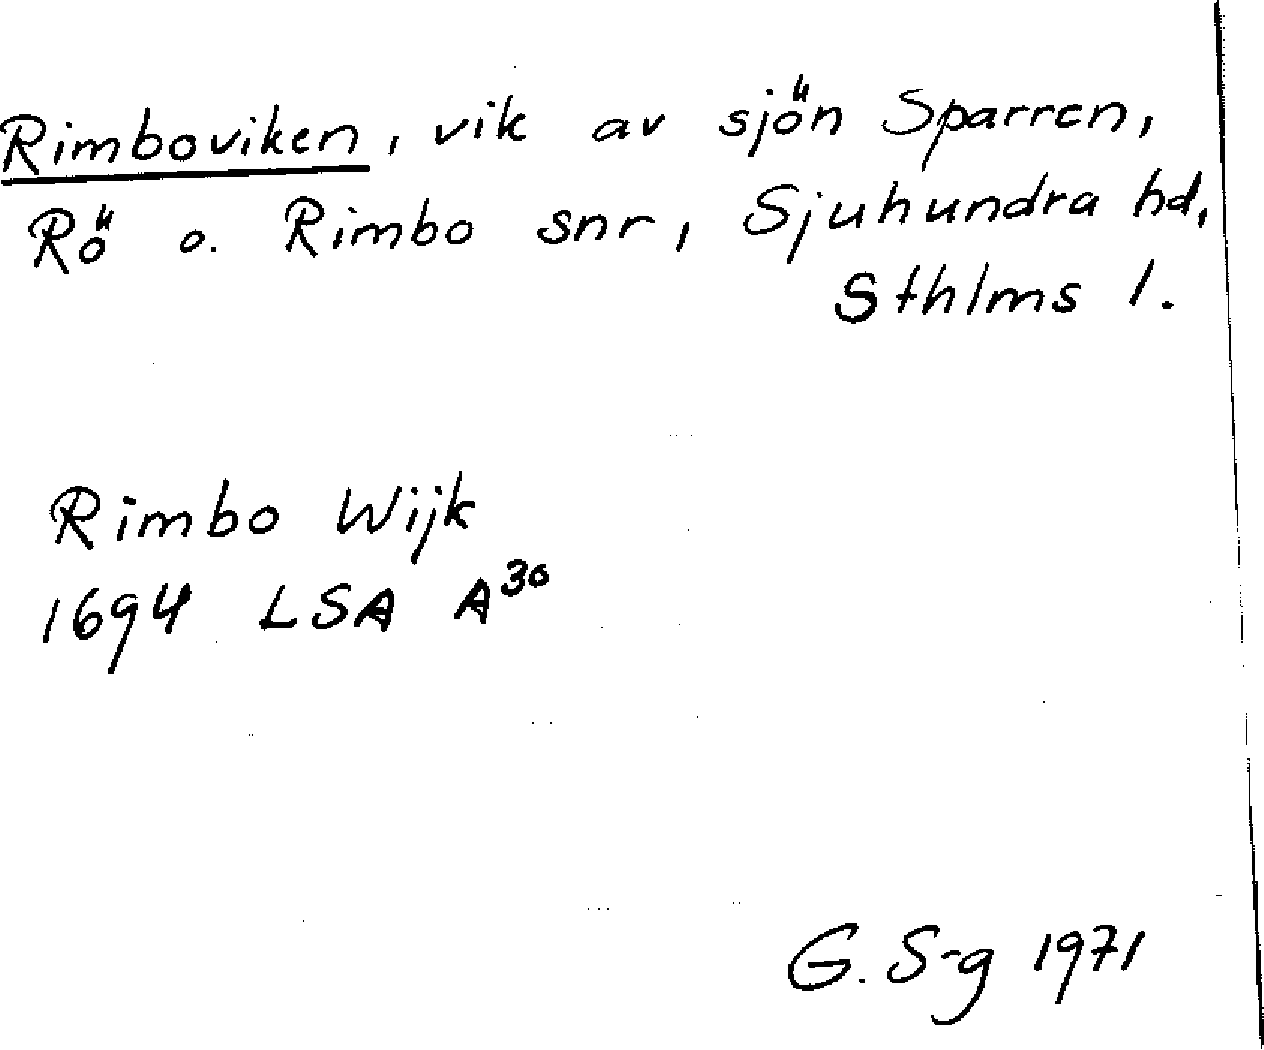 Rimboviken, vik av sjön Sparren,
Rö o. Rimbo snr, Sjuhundra hd,
Sthlms l.
Rimbo Wijk
1694 LSA A³⁰
G. S-g 1971